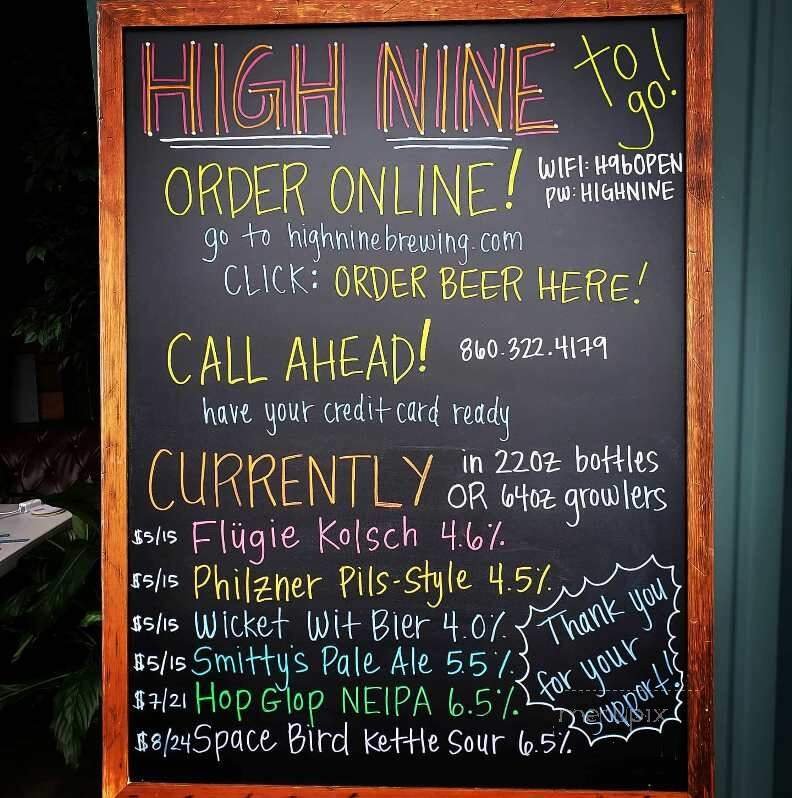 HIGH NINE to go!
ORDER ONLINE! WIFI: H9bOPEN
PW: HIGHNINE
go to highninebrewing.com
CLICK: ORDER BEER HERE!
CALL AHEAD! 860.322.4179
have your credit card ready
CURRENTLY in 22oz bottles
OR 64oz growlers
$5/15 Flügie Kolsch 4.6%
$5/15 Philzner Pils-Style 4.5%
$5/15 Wicket Wit Bier 4.0%
$5/15 Smitty's Pale Ale 5.5%
$7/21 Hop Glop NEIPA 6.5%
$8/24 Space Bird Kettle Sour 6.5%
Thank you
for your
support!
menupix